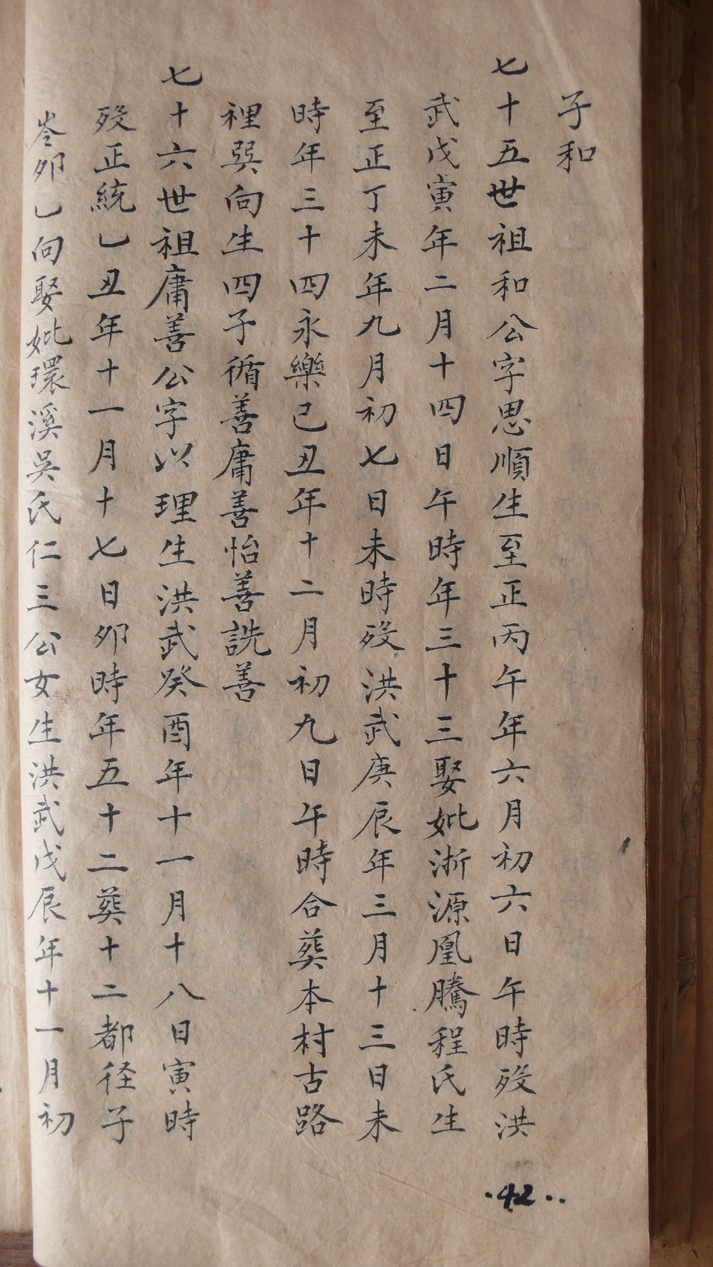 子和
七十五世祖和公字思順生至正丙午年六月初六日午時殁洪
武戊寅年二月十四日午時年三十三娶妣浙源凰騰程氏生
至正丁未年九月初七日未時殁洪武庚辰年三月十三日未
時年三十四永樂己丑年十二月初九日午時合葬本村古路
裡巽向生四子循善庸善怡善詵善
七十六世祖庸善公字以理生洪武癸酉年十一月十八日寅時
殁正統乙丑年十一月十七日卯時年五十二葬十二都径子
岺卯乙向娶妣環溪吳氏仁三公女生洪武戊辰年十一月初
·42··